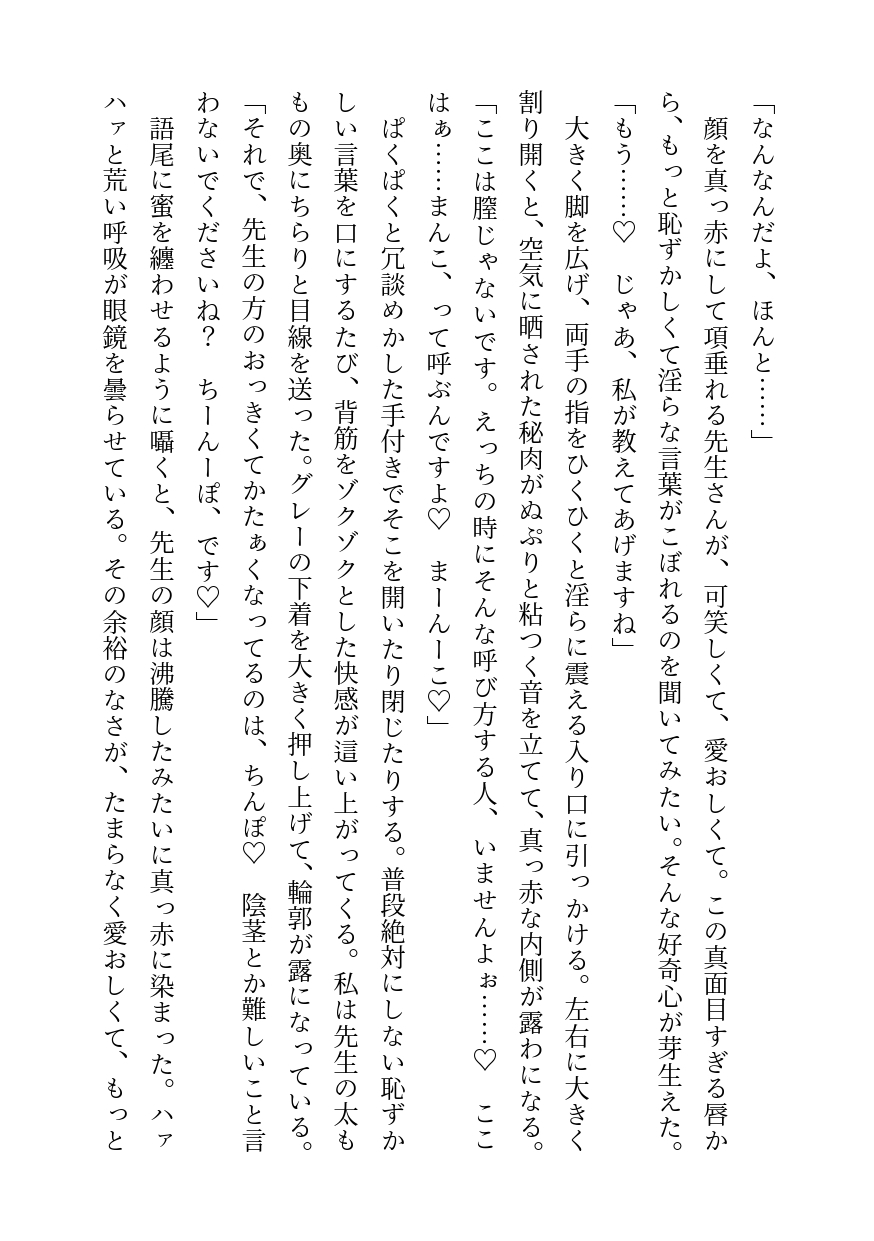 「なんなんだよ、ほんと……」
　顔を真っ赤にして項垂れる先生さんが、可笑しくて、愛おしくて。この真面目すぎる唇か
ら、もっと恥ずかしくて淫らな言葉がこぼれるのを聞いてみたい。そんな好奇心が芽生えた。
「もう……♡　じゃあ、私が教えてあげますね」
　大きく脚を広げ、両手の指をひくひくと淫らに震える入り口に引っかける。左右に大きく
割り開くと、空気に晒された秘肉がぬぷりと粘つく音を立てて、真っ赤な内側が露わになる。
「ここは膣じゃないです。えっちの時にそんな呼び方する人、いませんよぉ……♡　ここ
はぁ……まんこ、って呼ぶんですよ♡　まーんーこ♡」
　ぱくぱくと冗談めかした手付きでそこを開いたり閉じたりする。普段絶対にしない恥ずか
しい言葉を口にするたび、背筋をゾクゾクとした快感が這い上がってくる。私は先生の太も
もの奥にちらりと目線を送った。グレーの下着を大きく押し上げて、輪郭が露になっている。
「それで、先生の方のおっきくてかたぁくなってるのは、ちんぽ♡　陰茎とか難しいこと言
わないでくださいね？　ちーんーぽ、です♡」
　語尾に蜜を纏わせるように囁くと、先生の顔は沸騰したみたいに真っ赤に染まった。ハァ
ハァと荒い呼吸が眼鏡を曇らせている。その余裕のなさが、たまらなく愛おしくて、もっと